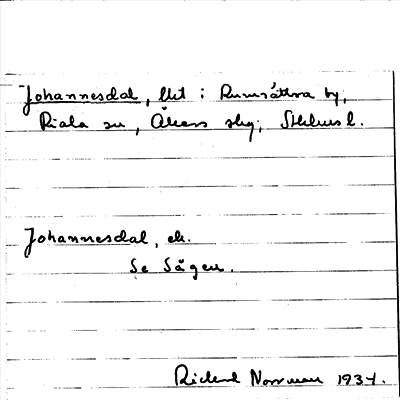 Johannesdal, lht i Rumsättra by,
Riala sn, Åkers skg; Sthlms l.
Johannesdal, ek.
Se Sågen.
Rickard Norrman 1934.